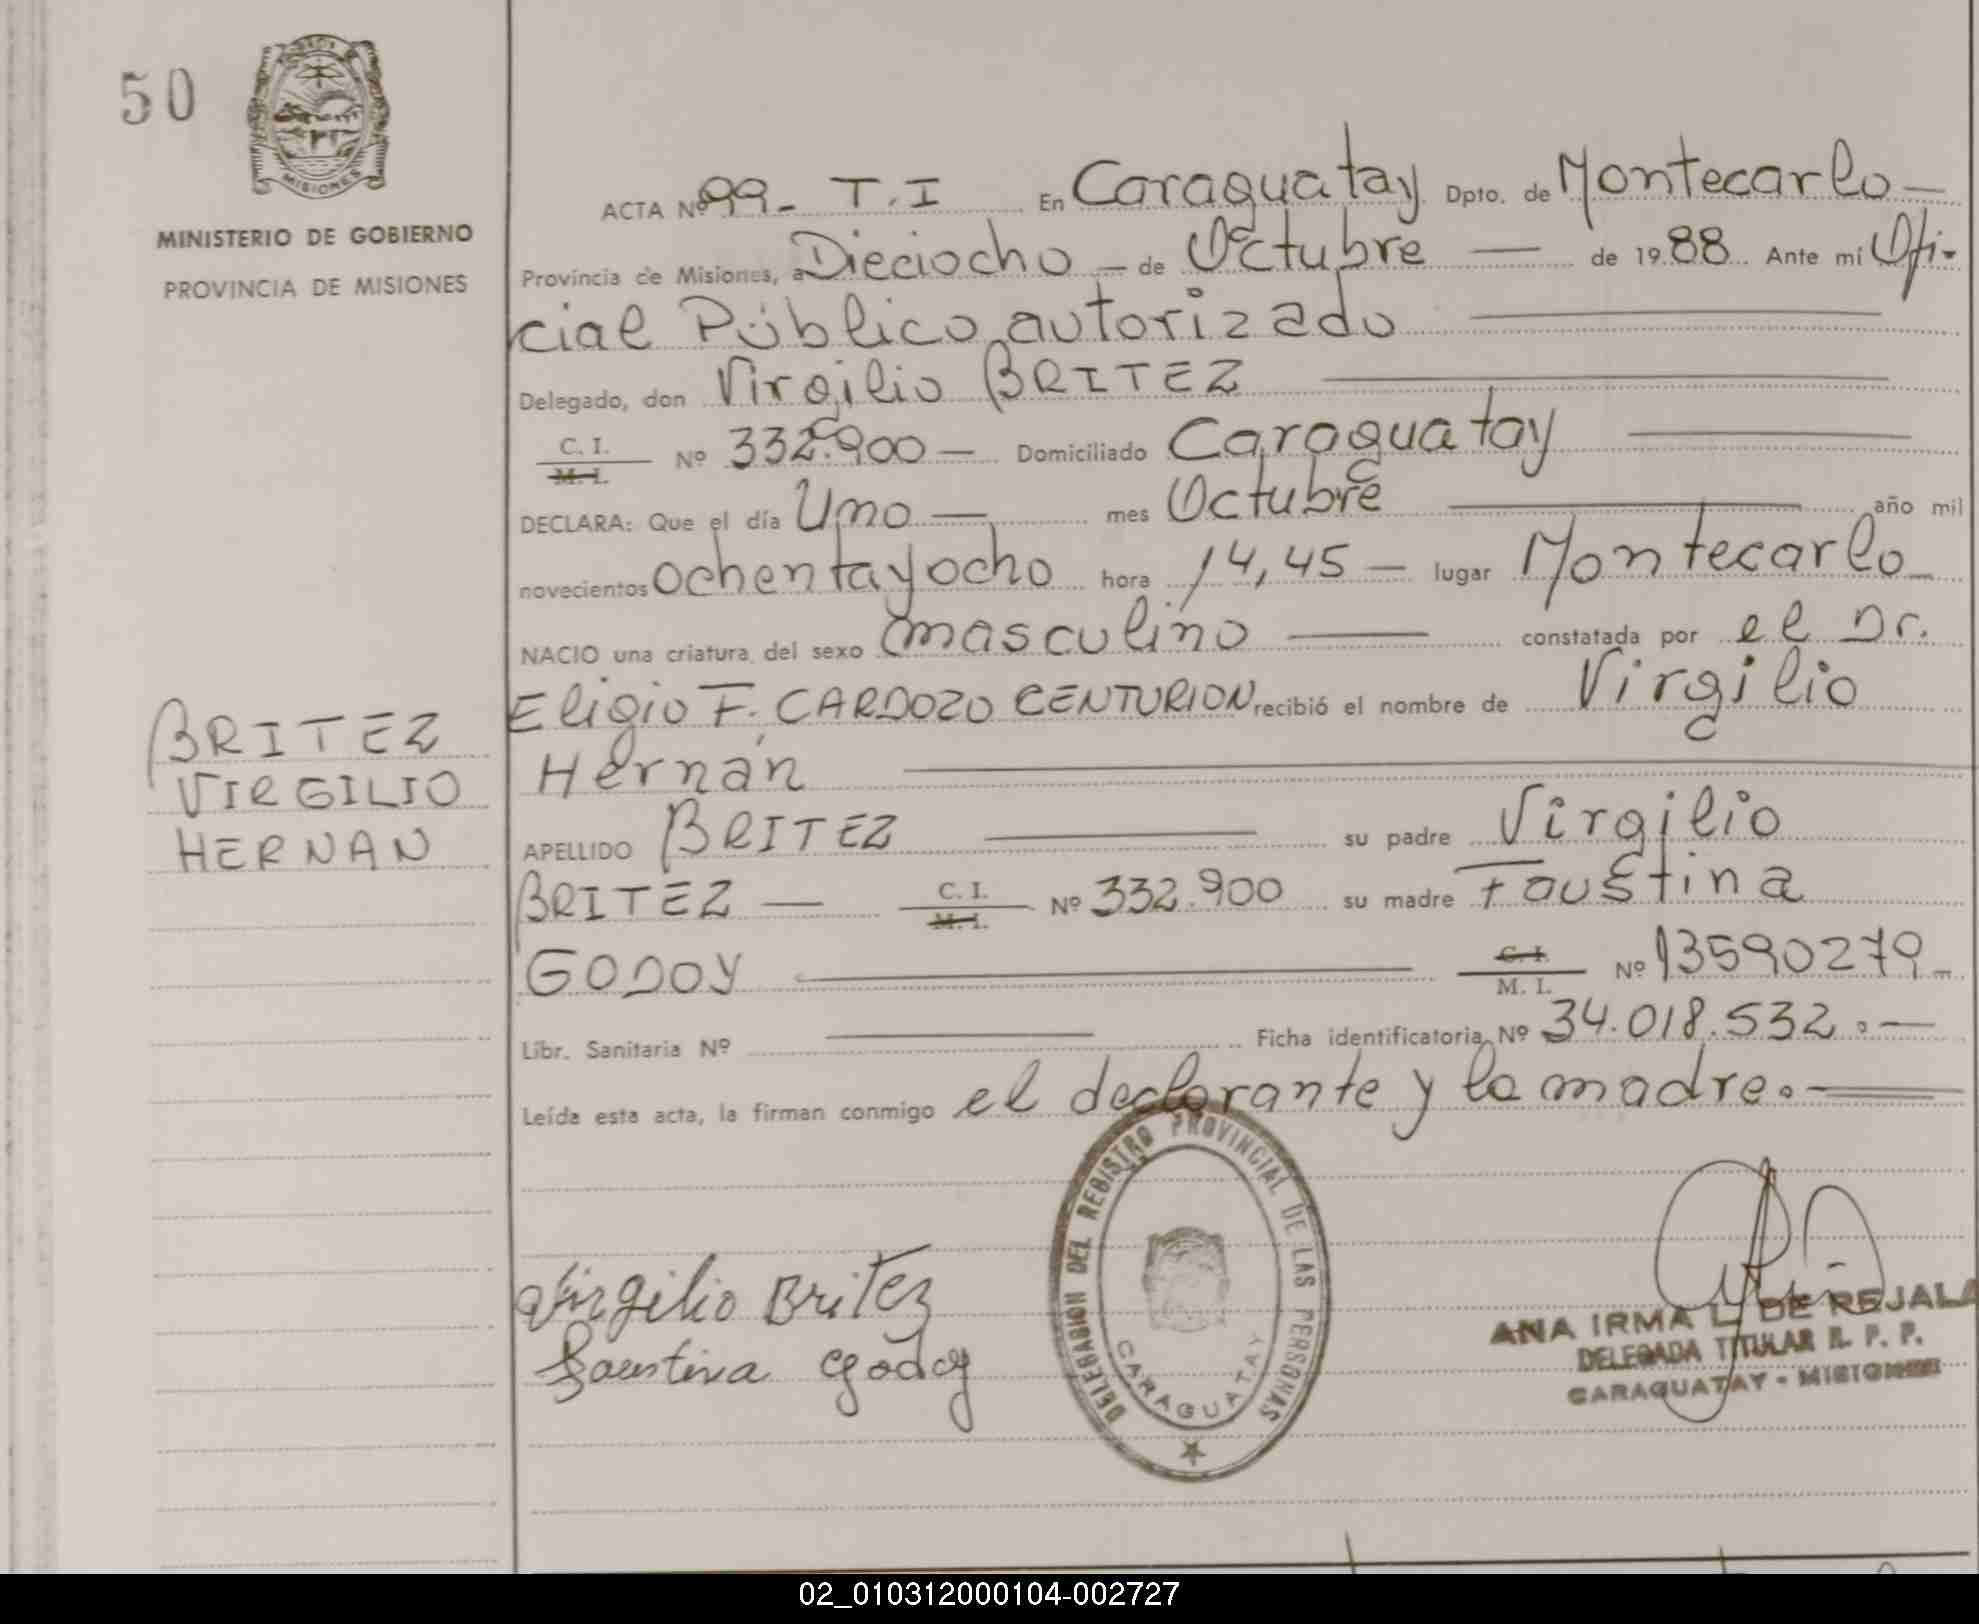 50
MISIONES
MINISTERIO DE GOBIERNO
PROVINCIA DE MISIONES
ACTA Nº 99- T.I En Caraguatay Dpto. de Montecarlo
Provincia de Misiones, a Dieciocho de Octubre de 1988 Ante mí Ofi-
cial Público autorizado
Delegado, don Virgilio BRITEZ
C. I.
M. I.
Nº 332.900 Domiciliado Caraguatay
DECLARA: Que el día Uno mes Octubre año mil
novecientos ochentayocho hora 14,45 lugar Montecarlo
NACIO una criatura del sexo masculino constatada por el Dr.
Eligio F. CARDOZO CENTURION recibió el nombre de Virgilio
Hernán
BRITEZ
VIRGILIO
HERNAN
APELLIDO BRITEZ su padre Virgilio
BRITEZ C. I. Nº 332.900 su madre Faustina
M. I.
GODOY C. I. Nº 13590279
M. I.
Libr. Sanitaria Nº Ficha identificatoria Nº 34.018.532.-
Leída esta acta, la firman conmigo el declarante y la madre.
Virgilio Britez
Faustina Godoy
DELEGACION DEL REGISTRO PROVINCIAL DE LAS PERSONAS
CARAGUATAY
ANA IRMA L. DE REJALA
DELEGADA TITULAR R. P. P.
CARAGUATAY - MISIONES
02_010312000104-002727